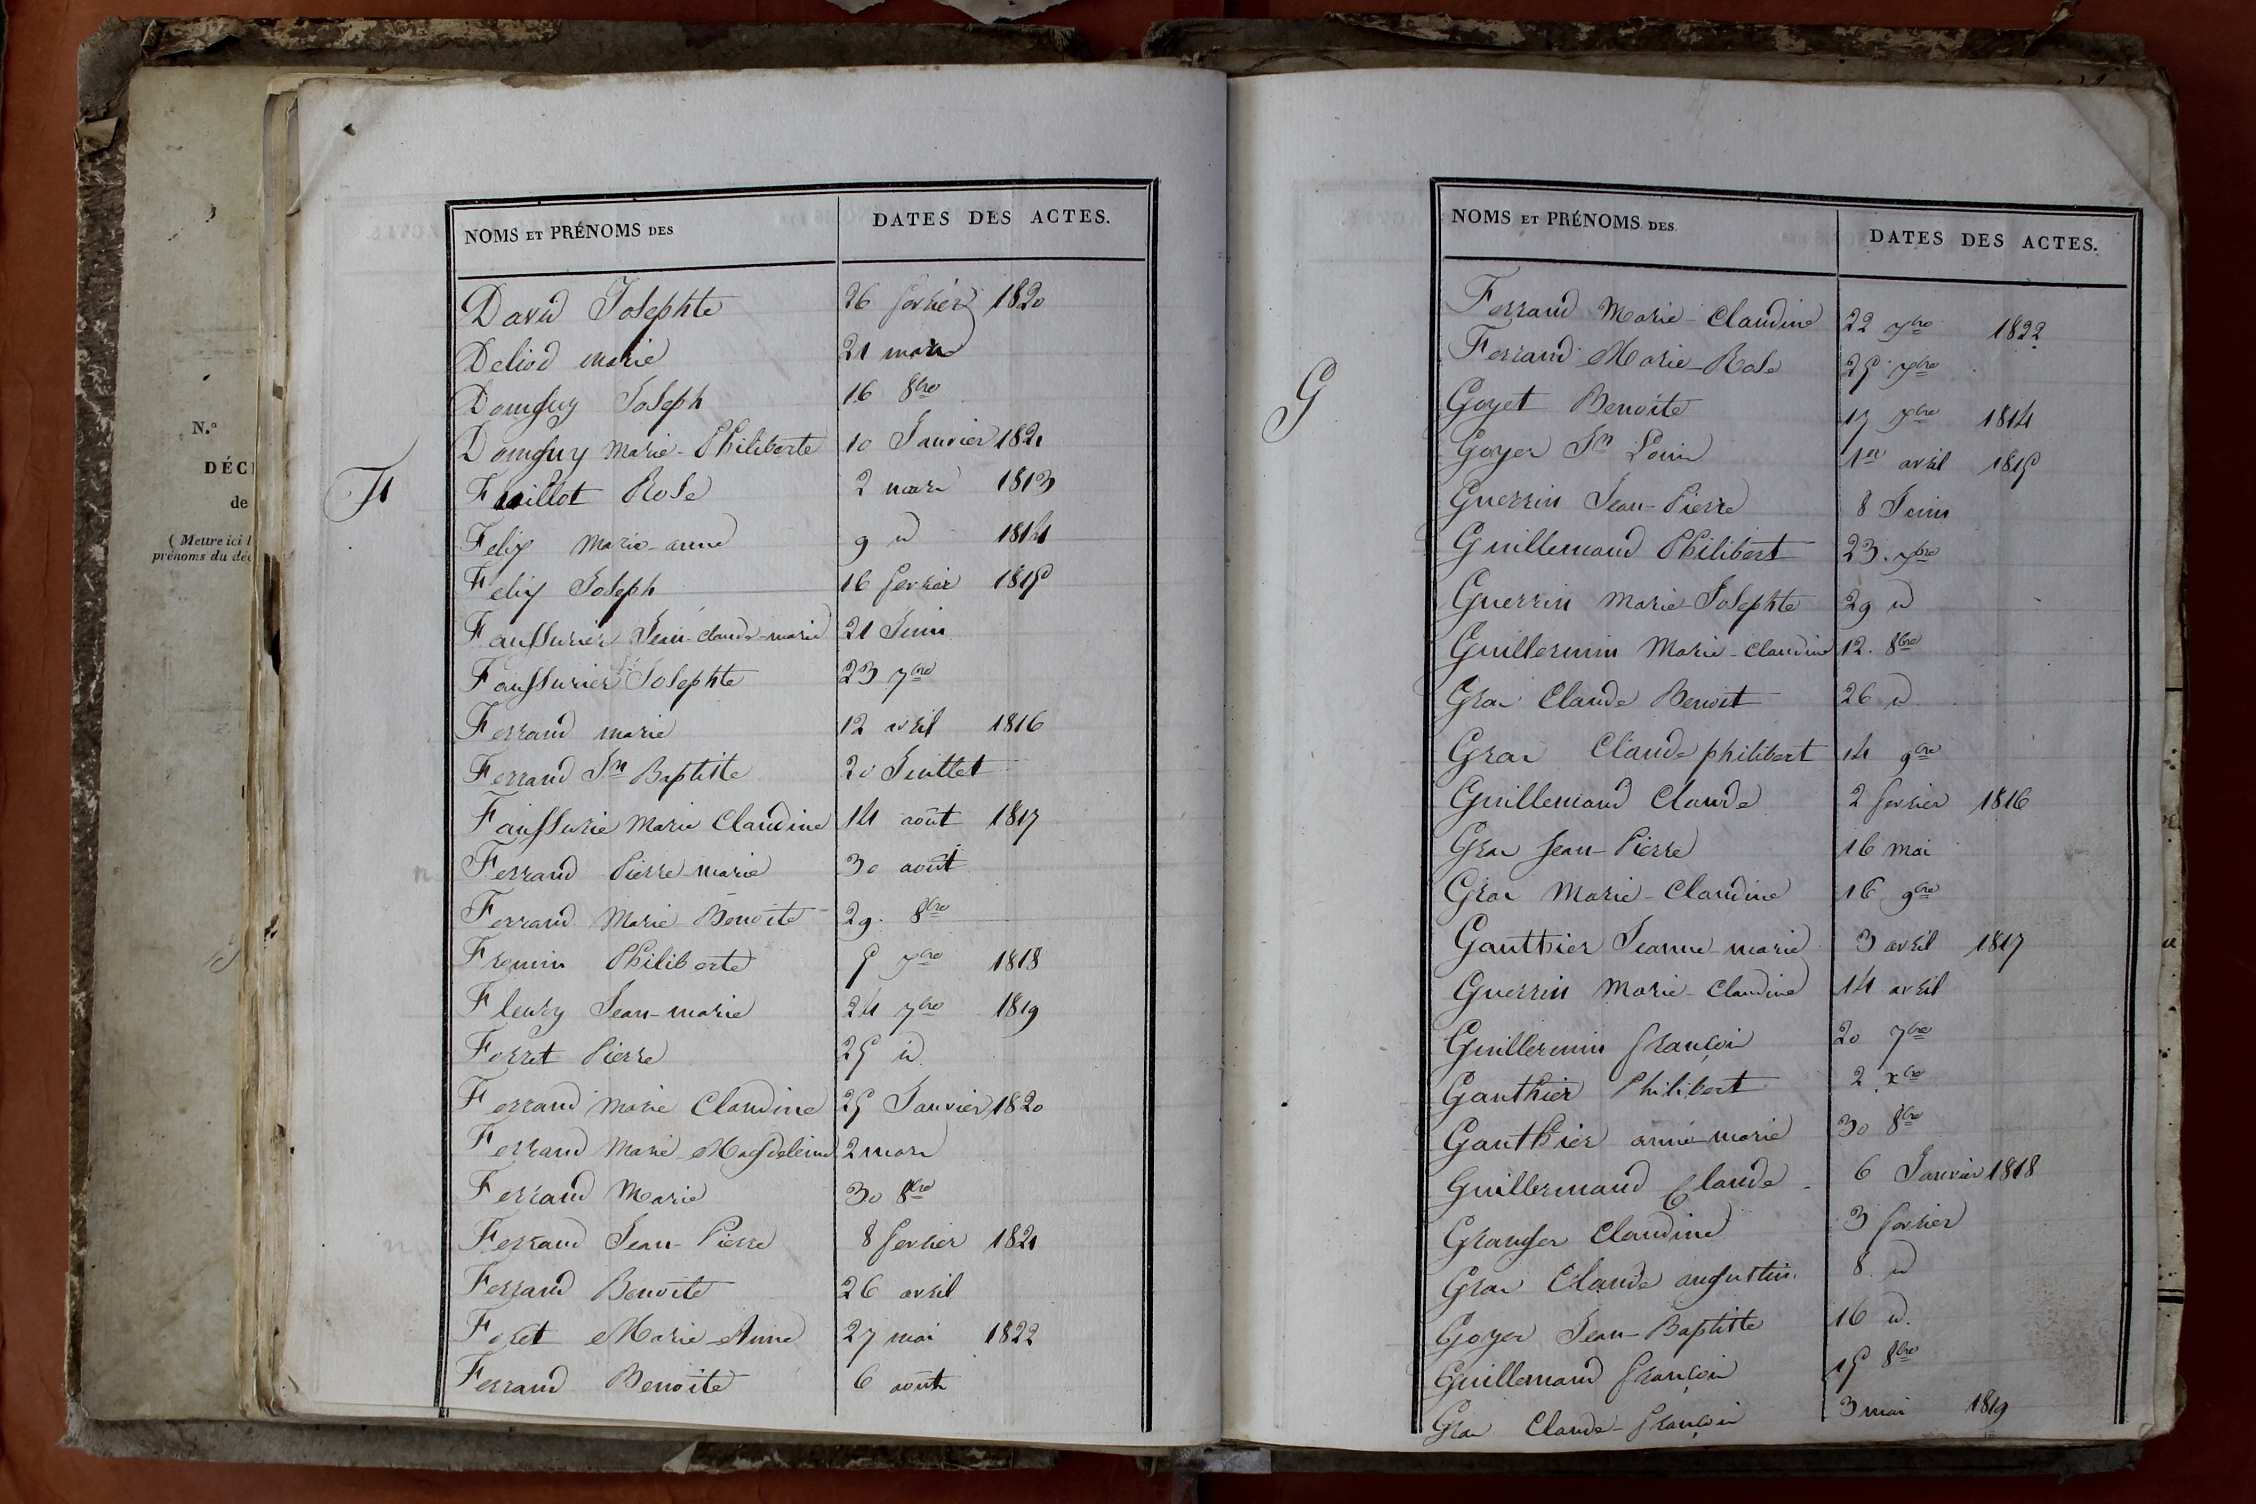 N.°
DÉC
de
( Mettre ici l
prénoms du déc
NOMS ET PRÉNOMS DES DATES DES ACTES.
David Josephte 26 fevrier 1820
Deliod marie 21 mars
Domguy Joseph 16 8bre
Domguy Marie-Philiberte 10 Janvier 1821
F
Fuillot Rose 2 mars 1813
Felix Marie-anne 9 id 1814
Felix Joseph 16 fevrier 1815
Faussurier Jean-Claude-marie 21 Juin
Faussurier Josephte 23 7bre
Ferrand marie 12 avril 1816
Ferrand Jn Baptiste 20 Juillet
Faussurie Marie Claudine 14 août 1817
Ferrand Pierre-marie 30 août
Ferrand Marie Benoite 29. 8bre
Fremin Philiberte 5 7bre 1818
Fleury Jean-marie 24 7bre 1819
Forret Pierre 25 id
Ferrand Marie Claudine 25 Janvier 1820
Ferrand Marie Magdeleine 2 mars
Ferrand Marie 30 8bre
Ferrand Jean-Pierre 8 fevrier 1821
Ferrand Benoite 26 avril
Foret Marie-Anne 27 mai 1822
Ferrand Benoite 6 août
NOMS ET PRÉNOMS DES DATES DES ACTES.
Ferrand Marie-Claudine 22 7bre 1822
Ferrand Marie-Rose 25 7bre
G
Goyet Benoite 17 7bre 1814
Goyer Jn Louis 1er avril 1815
Guerrin Jean-Pierre 8 Juin
Guillemaud Philibert 23. 7bre
Guerrin Marie-Josephte 29 id
Guillermin Marie-Claudine 12. 8bre
Gras Claude Benoit 26 id
Gras Claude philibert 14 9bre
Guillemaud Claude 2 fevrier 1816
Gras Jean-Pierre 16 mai
Gras Marie-Claudine 16 9bre
Gauthier Jeanne-marie 3 avril 1817
Guerrin Marie-Claudine 14 avril
Guillermin françois 20 7bre
Gauthier Philibert 2 xbre
Gauthier anne-marie 30 8bre
Guillermaud Claude 6 Janvier 1818
Granger Claudine 3 fevrier
Gras Claude augustin. 8 id
Goyer Jean-Baptiste 16 id.
Guillemaud françois 15 8bre
Gras Claude-françois 3 mai 1819